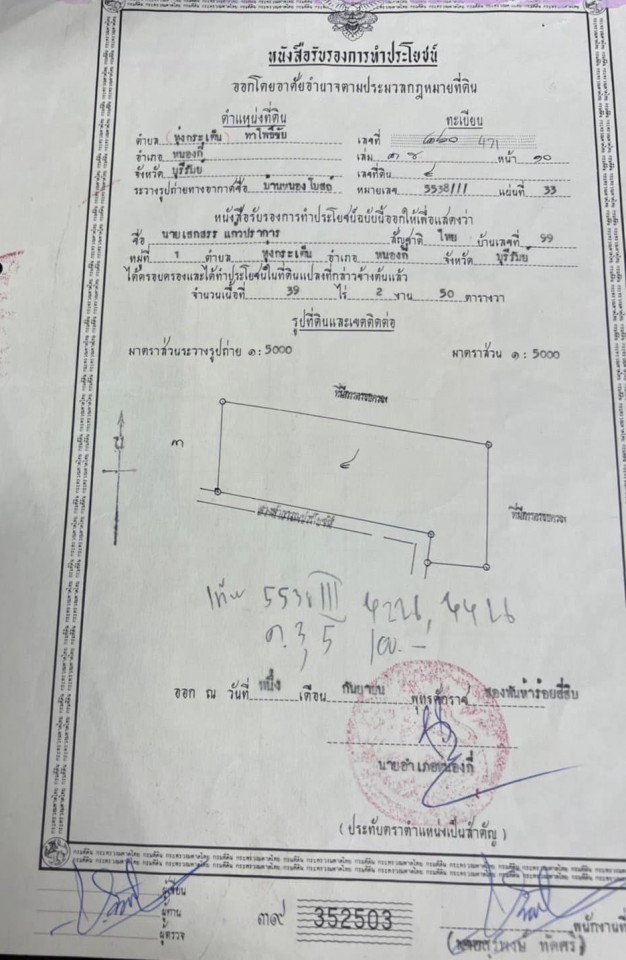 หนังสือรับรองการทำประโยชน์
ออกโดยอาศัยอำนาจตามประมวลกฎหมายที่ดิน
ตำแหน่งที่ดิน ทะเบียน
ตำบล ทุ่งกระเต็น เลขที่ 471
อำเภอ หนองกี่ เล่ม หน้า ๑๐
จังหวัด บุรีรัมย์ เลขที่ดิน ๔
ระวางรูปถ่ายทางอากาศชื่อ บ้านหนอง หมายเลข 5538III แผ่นที่ 33
หนังสือรับรองการทำประโยชน์ฉบับนี้ออกให้เพื่อแสดงว่า
ชื่อ สัญชาติ ไทย บ้านเลขที่ 99
หมู่ที่ 1 ตำบล ทุ่งกระเต็น อำเภอ หนองกี่ จังหวัด บุรีรัมย์
ได้ครอบครองและได้ทำประโยชน์ในที่ดินแปลงที่กล่าวข้างต้นแล้ว
จำนวนเนื้อที่ 39 ไร่ 2 งาน 50 ตารางวา
รูปที่ดินและเขตติดต่อ
มาตราส่วนระวางรูปถ่าย ๑ : 5000 มาตราส่วน ๑ : 5000
ที่มีการครอบครอง
น
๓
๔
ที่มีการครอบครอง
ทางสาธารณประโยชน์
5538 III
ค. 3, 5 100.-
ออก ณ วันที่ หนึ่ง เดือน กันยายน พุทธศักราช สองพันห้าร้อยสี่สิบ
นายอำเภอหนองกี่
(ประทับตราตำแหน่งเป็นสำคัญ)
ผู้เขียน
ผู้ทาน
ผู้ตรวจ
๓๙ 352503
พนักงานที่